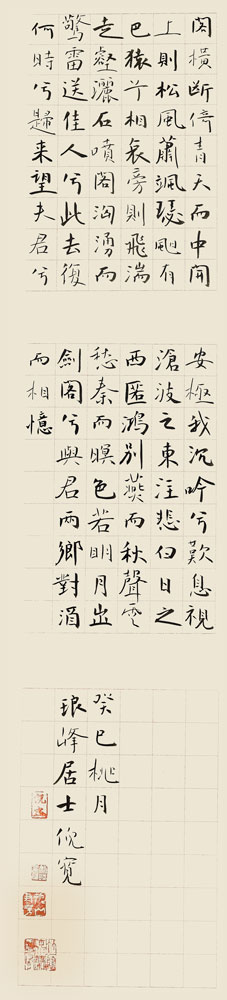 閣橫斷倚青天而中開
上則松風蕭颯瑟颶有
巴猿兮相哀旁則飛湍
走壑灑石噴閣洶湧而
驚雷送佳人兮此去復
何時兮歸來望夫君兮
安極我沉吟兮歎息視
滄波之東注悲白日之
西匿鴻別燕而秋聲雲
愁秦而暝色若明月出
劍閣兮與君兩鄉對酒
而相憶
癸巳桃月
琅峰居士倪寬